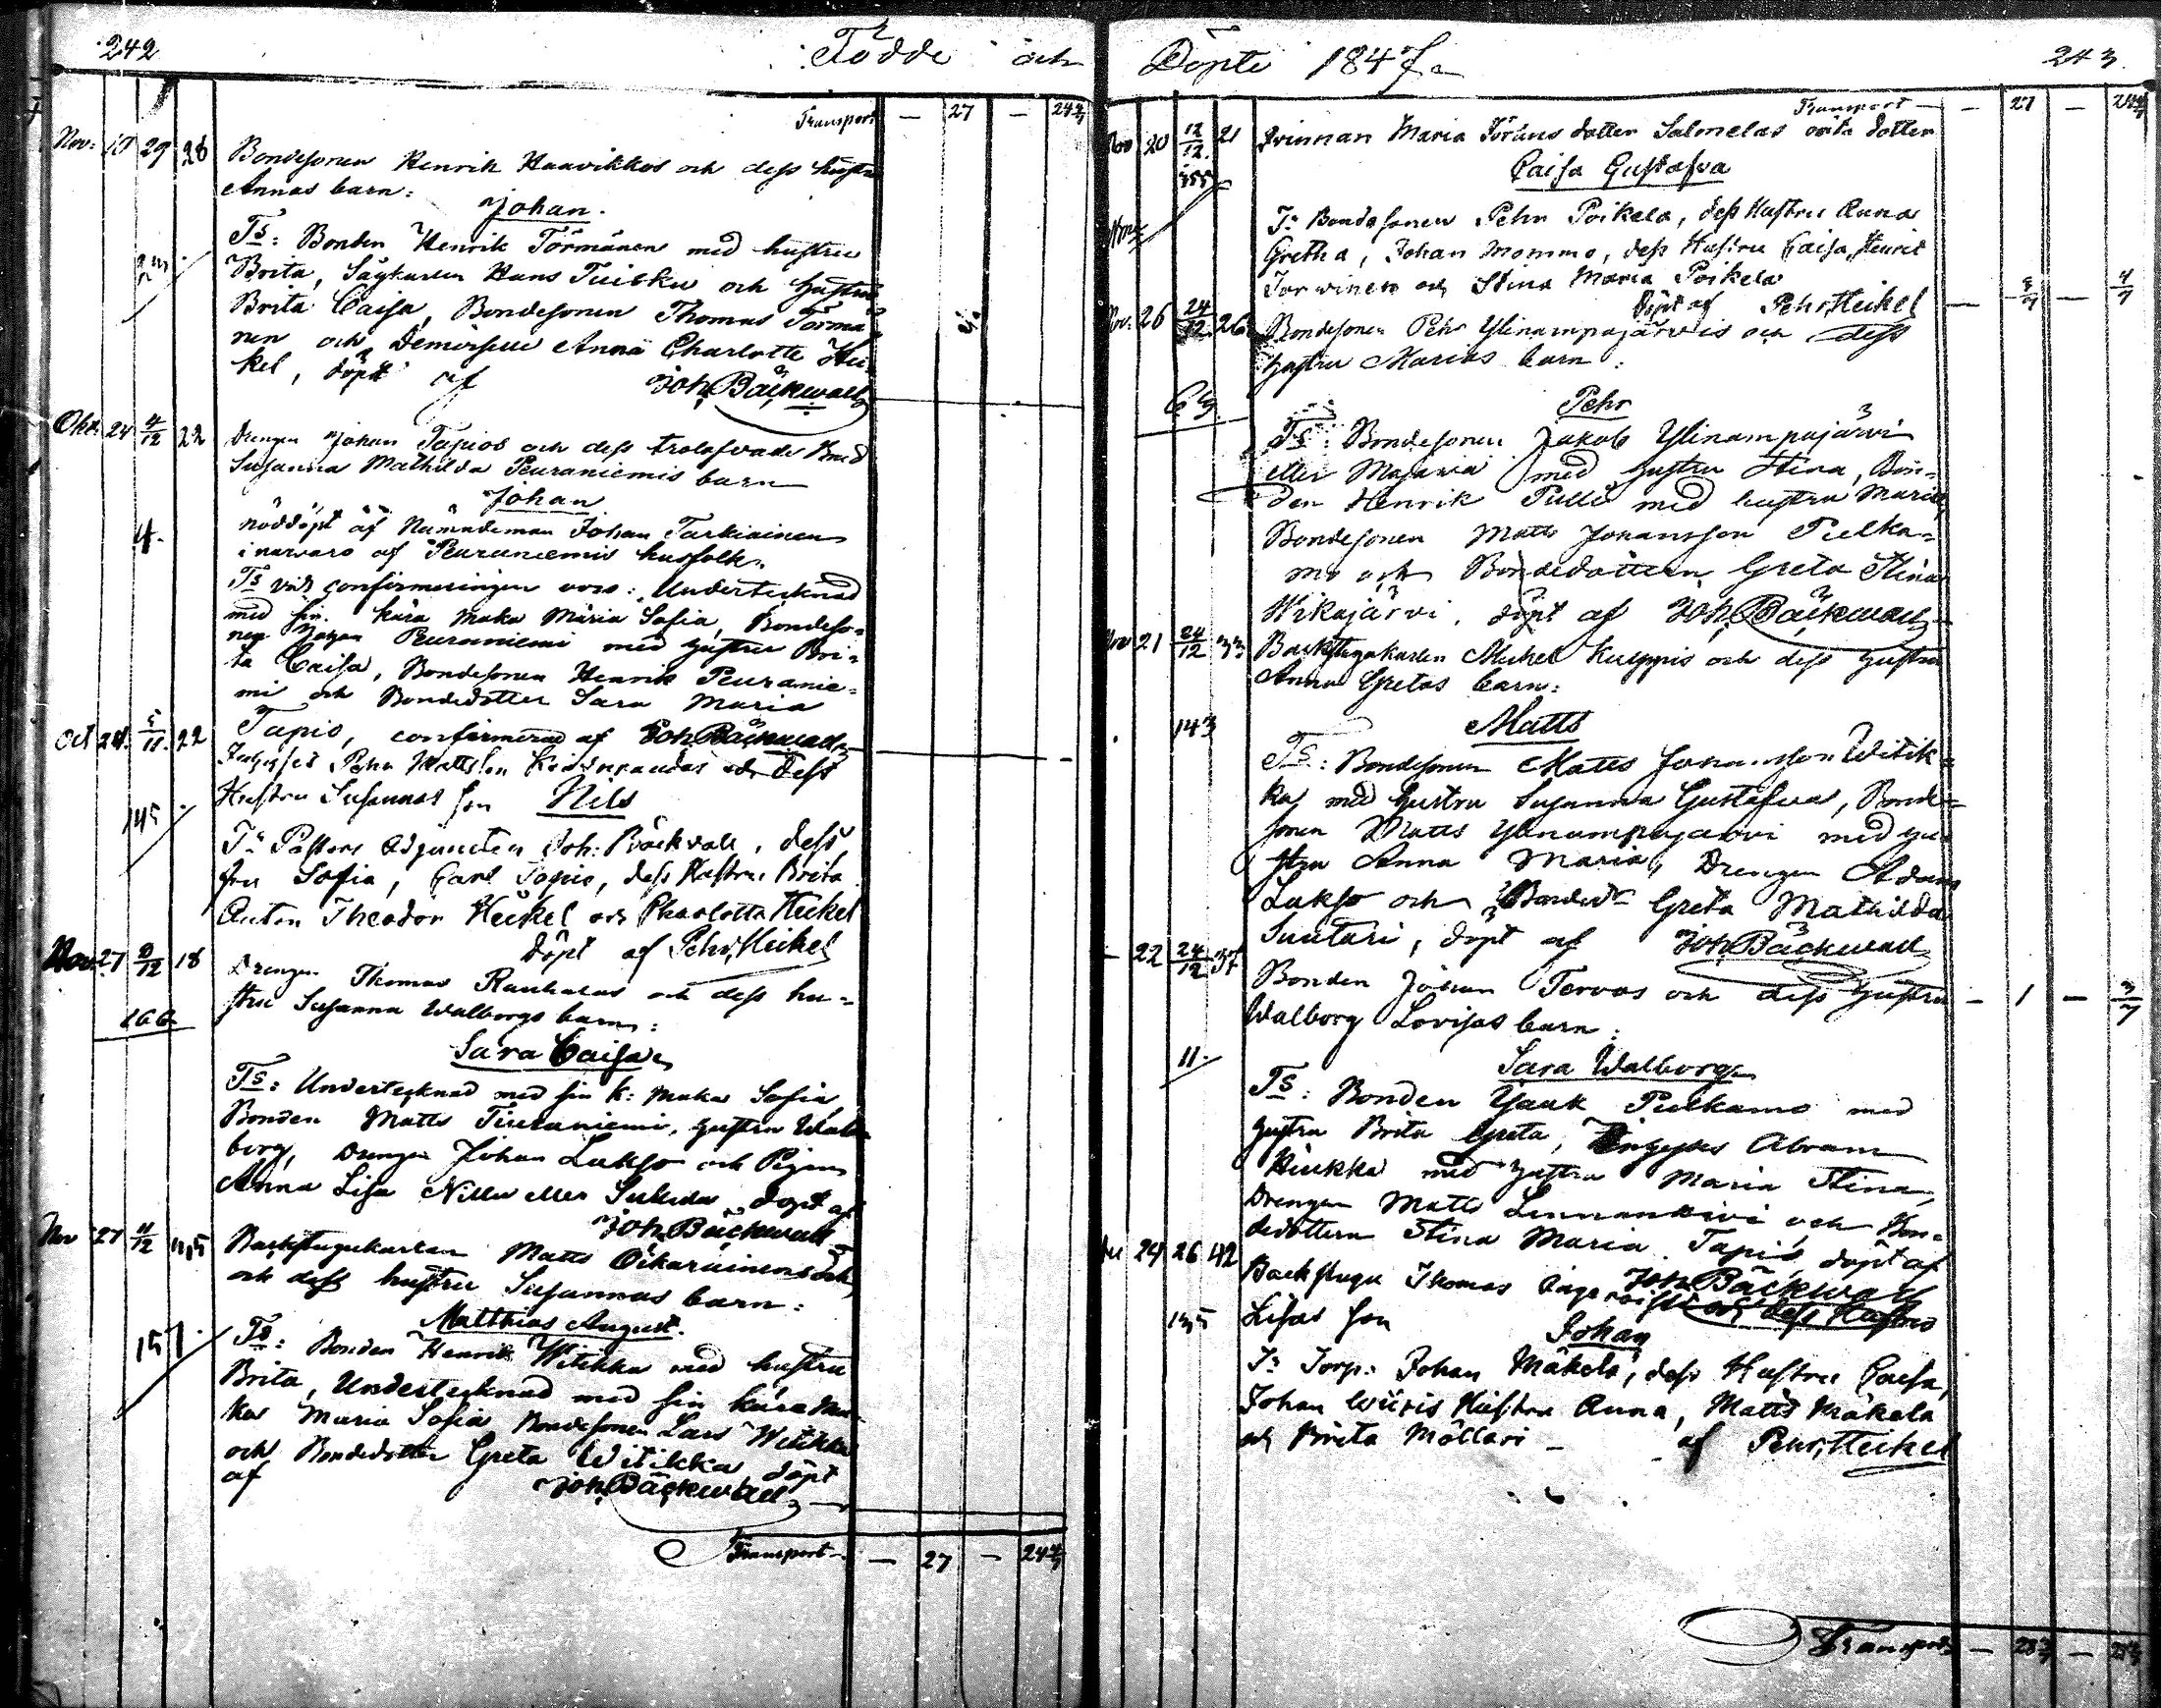 242
Födde och
Transport — 27 — 24 4/7
Nov: 29 28 Bondesonen Henrik Haavikkos och dess hustru
Annas barn:
Johan.
Ts: Bonden Henrik Törmänen med hustru
Brita, Hans Tuisku och hustru
Brita Caisa, Bondesonen Thomas Törmä
nen och Demoiselle Anna Charlotte Hei
kel, döpt af Joh. Bäckwall
Okt. 24 4/12 22 Drengen Johan Tapios och dess trolofvade
Susanna Mathilda Peuraniemis barn
Johan
4. nöddöpt af Nämndeman Johan Tarkiainen
i närvaro af Peuraniemis husfolk.
Ts vid confirmeringen voro: Undertecknad
med sin kära maka Maria Sofia, Bondeso=
nen Johan Peuraniemi med hustru Bri=
ta Caisa, Bondesonen Henrik Peuranie=
mi och Bondedotter Sara Maria
Tapio, confirmerad af Joh. Bäckwall
Oct 24. 5/11. 22 Inhyses Pehr Mattsson och dess
Hustru Susannas son Nils
145 Ts Pastors Adjuncten Joh: Bäckvall, dess
fru Sofia, Carl Tapio, dess Hustru Brita
Anton Theodor Heikel och Charlotta Heikel
döpt af Pehr Heikel
Nov. 27 /12 18 Drengen Thomas Rauhalas och dess hu=
stru Susanna Walborgs barn:
166
Sara Caisa
Ts: Undertecknad med sin k: maka Sofia
Bonden Matts Peuraniemi, hustru Wal
borg, Drengen Johan Lakso och Pigan
Anna Lisa Nilla eller Sukula döpt af
Joh. Bäckwall
Nov 27 4/12 Backstugukarlen Matts Oikarainens
och dess hustru Susannas barn:
Matthias August.
157 Ts: Bonden Henrik Witikka med hustru
Brita, Undertecknad med sin kära ma
ka Maria Sofia Bondesonen Lars Witikka
och Bondedotter Greta Witikka döpt
af Joh. Bäckwall
Transport — 27 — 24 4/7
Döpte 1847
243
Transport — 27 — 24 4/7
Nov 20 12/12. 21 Qvinnan Maria Görans dotter Salmelas oäkta dotter
Caisa Gustafva
Ts Bondesonen Pehr Poikela, dess Hustru Anna
Gretha, Johan Mommo, dess Hustru Caisa, Henric
Torvinen och Stina Maria Poikela
Döpt af Pehr Heikel
Nov. 26 24/12. 26 Bondesonen Pehr Ylinampajärvis och dess
hustru Marias barn:
Pehr
Ts: Bondesonen Jakob Ylinampajärvi
eller Majavia med hustru Stina, Bon=
den Henrik Pulli med hustru Maria,
Bondesonen Matts Johansson Pulka=
mo och Bondedottern Greta Stina
Wikajärvi, döpt af Joh. Bäckwall
Nov 21 24/12 33 Backstugukarlen Michel Kuoppis och dess hustru
Anna Gretas barn:
143
Matts
Ts: Bondesonen Matts Johansson Witik=
ka, med hustru Susanna Gustafva, Bonde=
sonen Matts Ylinampajärvi med hu
stru Anna Maria, Drengen Adam
Lakso och Greta Mathilda
Suutari, döpt af Joh. Bäckwall
- 22 24/12 37 Bonden Johan Tervos och dess hustru — 1 — 3/7
Walborg Lovisas barn:
11.
Sara Walborg
Ts: Bonden Isaak Pulkamo med
hustru Brita Greta, Inhyses Abram
Hiukka med hustru Maria Stina,
Drengen Matts Linnankivi och Bon=
dedottern Stina Maria Tapio, döpt af
Joh. Bäckwall
24 26 42 Backstugu Thomas och dess Hustru
135 Lisas son
Johan
Ts Torp: Johan Mäkelä, dess Hustru Caisa,
Johan Hustru Anna, Matts Mäkelä
och Brita Möllari — af Pehr Heikel
Transport —